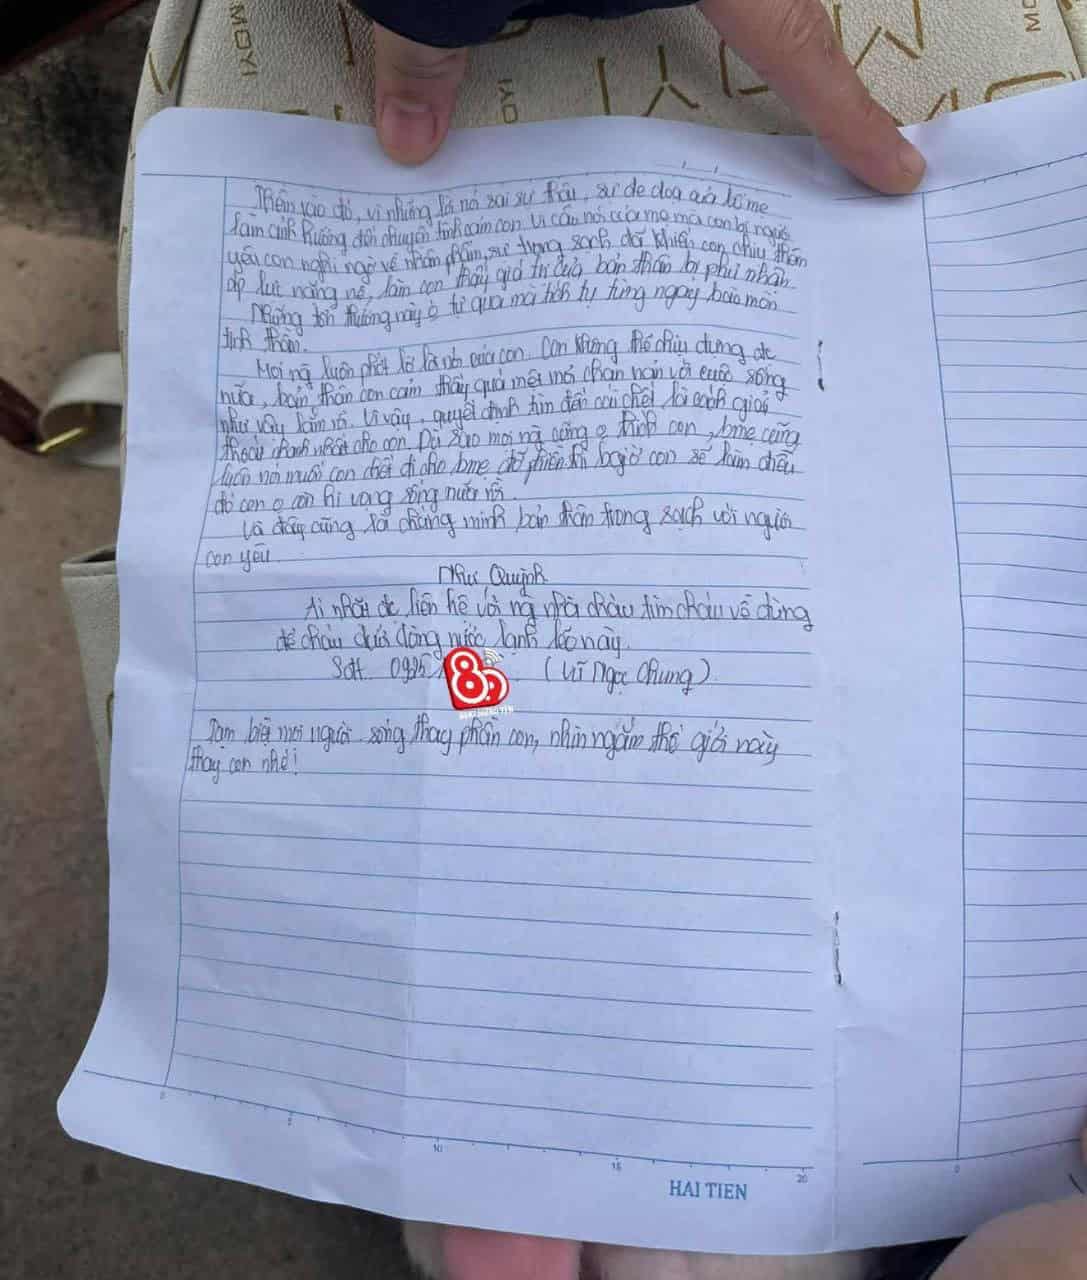 MOYI
Thêm vào đó, vì những lời nói sai sự thật, sự đe doạ của bố mẹ
làm ảnh hưởng đến chuyện tình cảm con. Vì câu nói của mẹ mà con bị người
yêu con nghi ngờ về nhân phẩm, sự trong sạch đã khiến con chịu thêm
áp lực nặng nề, làm con thấy giá trị của bản thân bị phủ nhận.
Những tổn thương này o tự qua mà tích tụ từng ngày bào mòn
tinh thần.
Mọi ng luôn phớt lờ lời nói của con. Con không thể chịu đựng đc
nữa, bản thân con cảm thấy quá mệt mỏi chán nản với cuộc sống
như vậy lắm rồi. Vì vậy, quyết định tìm đến cái chết là cách giải
thoát nhanh nhất cho con. Dù sao mọi ng cũng o thích con, bmẹ cũng
luôn nói muốn con chết đi cho bmẹ đỡ phiền thì bgiờ con sẽ làm điều
đó con o còn hi vọng sống nữa rồi.
Và đây cũng là chứng minh bản thân trong sạch với người
con yêu.
Như Quỳnh
Ai nhặt đc liên hệ với ng nhà cháu tìm cháu về đừng
để cháu dưới dòng nước lạnh lẽo này.
Sđt. 0925 (Vĩ Ngọc Chung)
Tạm biệt mọi người sống thay phần con, nhìn ngắm thế giới này
thay con nhé!
0 5 10 15 20
0
HAI TIEN